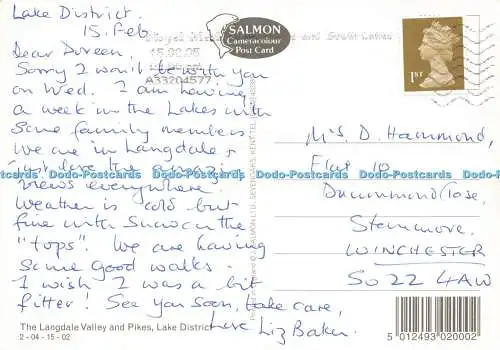 Lake District.
15. Feb
Dear Doreen.
Sorry I won't be with you
on Wed. I am having
a week in the Lakes with
some family members
We are in Langdale &
just love the amazing
views everywhere.
Weather is cold but
fine with snow on the
"tops". We are having
some good walks -
I wish I was a bit
fitter! See you soon, take care,
Love Liz Baker.
The Langdale Valley and Pikes, Lake District
2 - 04 - 15 - 02
SALMON
Cameracolour
Post Card
Royal and South Lakes
15.02.05
A33204577
1ST
Mrs. D. Hammond,
Flat 10
Drummond Close,
Stanmore,
WINCHESTER
SO22 4AW
5 012493 020002
Dodo-Postcards Dodo-Postcards Dodo-Postcards Dodo-Postcards Dodo-Postcards Dodo-Postcards